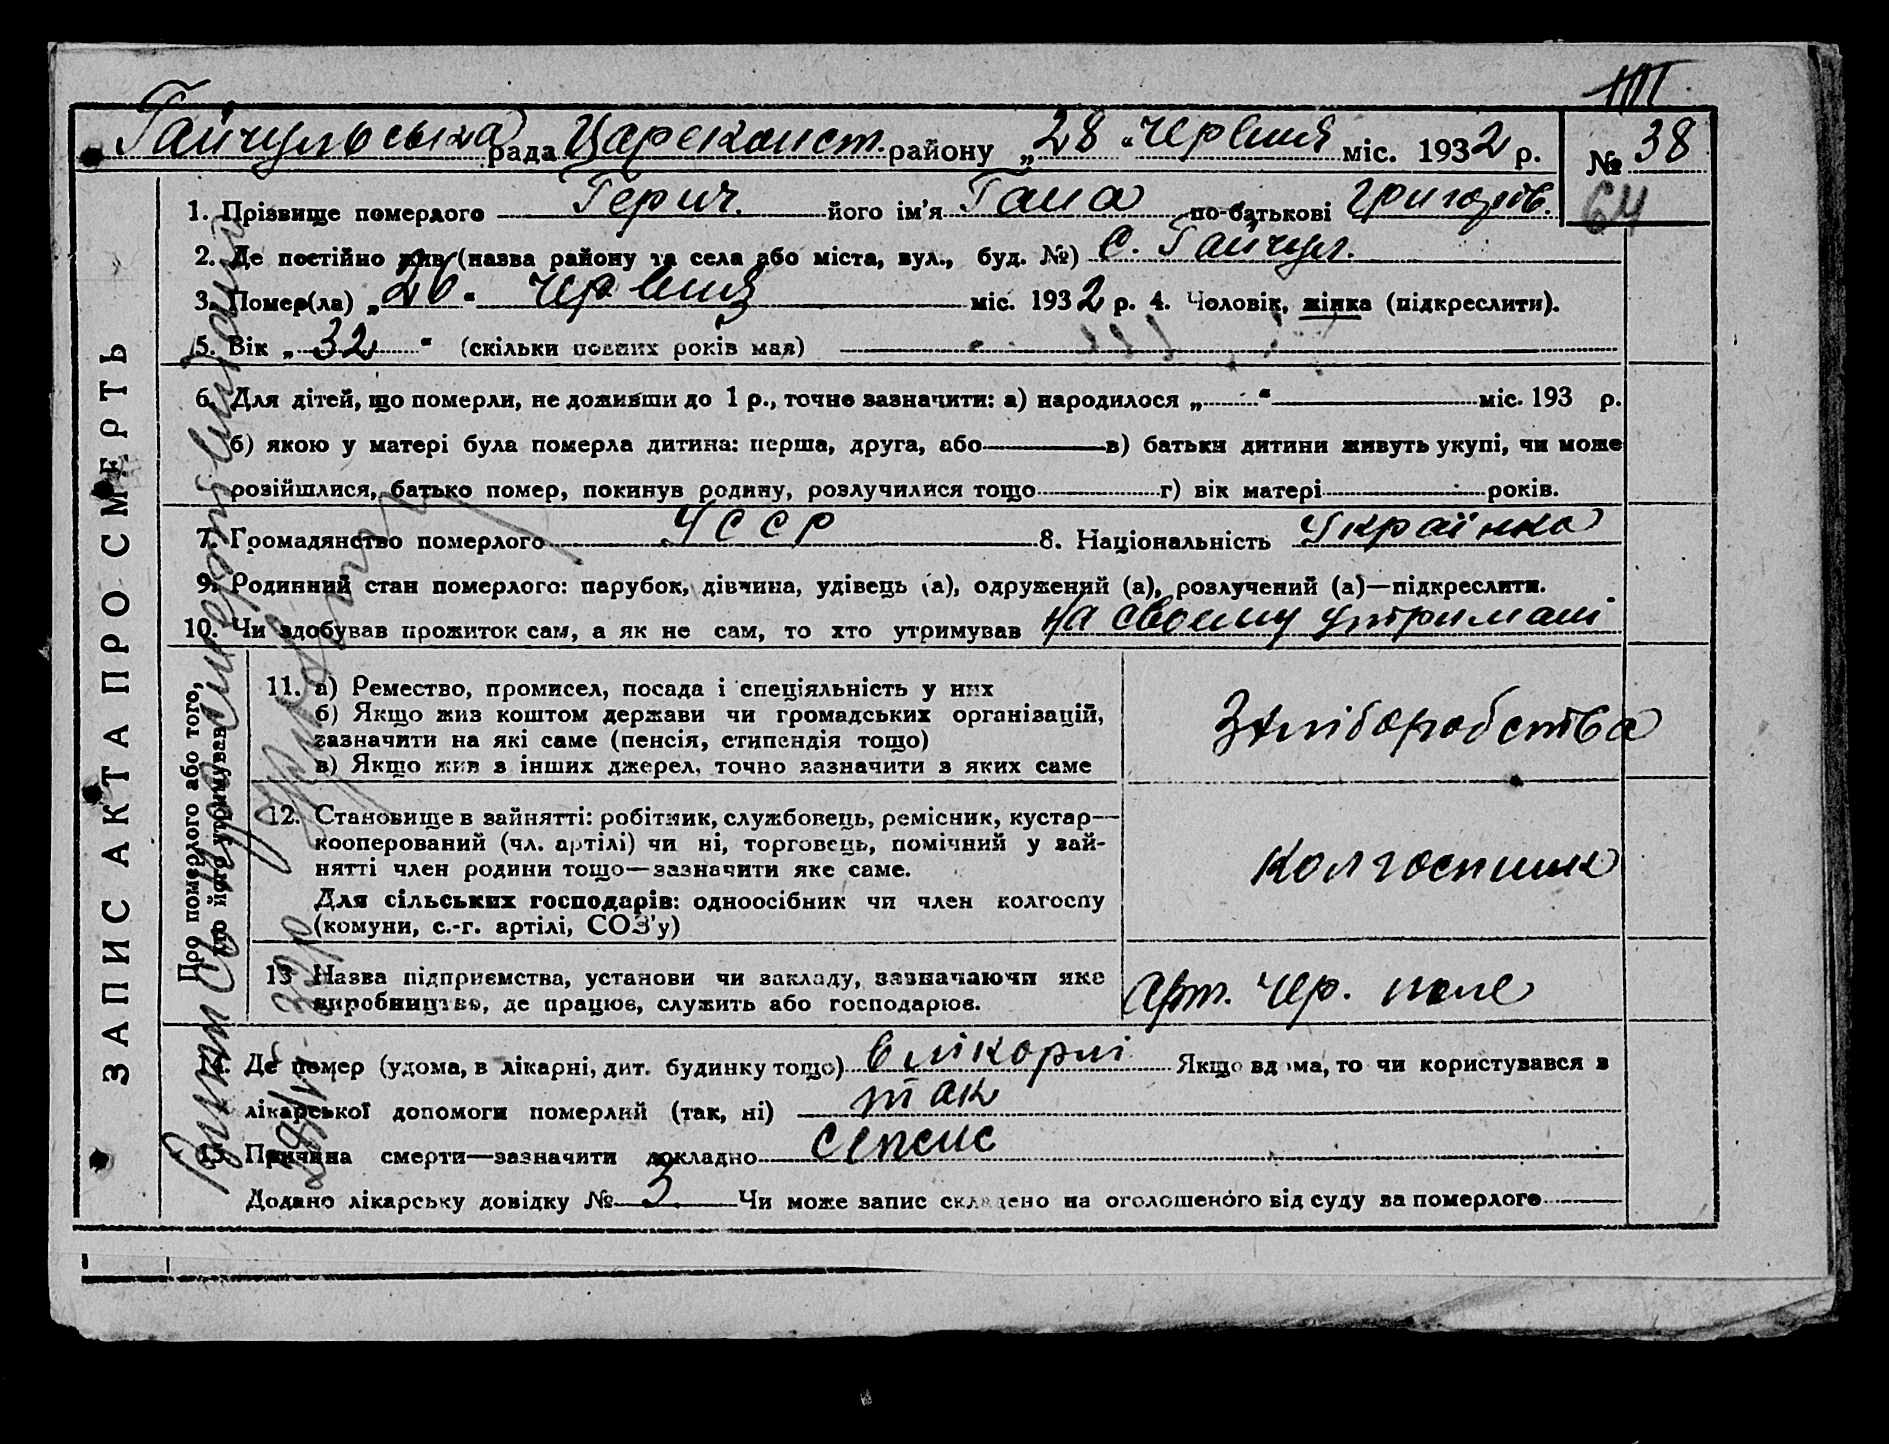 Гайчульська рада Цареконст. району „28“ Червня міс. 1932 р. № 38
64
1. Прізвище померлого Герич. його ім'я Гана по-батькові Григорів.
2. Де постійно жив (назва району та села або міста, вул., буд. №) с. Гайчул.
3. Помер(ла) „26“ Червня міс. 1932 р. 4. Чоловік, жінка (підкреслити).
5. Вік „32“ (скільки повних років мав)
6. Для дітей, що померли, не доживши до 1 р., точно зазначити: а) народилося „ “ міс. 193 р.
б) якою у матері була померла дитина: перша, друга, або в) батьки дитини живуть укупі, чи може
розійшлися, батько помер, покинув родину, розлучилися тощо г) вік матері років.
7. Громадянство померлого УССР 8. Національність Українка
9. Родинний стан померлого: парубок, дівчина, удівець (а), одружений (а), розлучений (а)—підкреслити.
10. Чи здобував прожиток сам, а як не сам, то хто утримував на своєму утримані
ЗАПИС АКТА ПРО СМЕРТЬ
Про померлого або того,
хто його утримував
11. а) Ремество, промисел, посада і спеціяльність у них
б) Якщо жив коштом держави чи громадських організацій,
зазначити на які саме (пенсія, стипендія тощо)
в) Якщо жив з інших джерел, точно зазначити з яких саме
З хліборобства
12. Становище в зайнятті: робітник, службовець, ремісник, кустар—
кооперований (чл. артілі) чи ні, торговець, помічний у зай-
нятті член родини тощо—зазначити яке саме.
Для сільських господарів: одноосібник чи член колгоспу
(комуни, с.-г. артілі, СОЗ'у)
колгоспник
13 Назва підприємства, установи чи закладу, зазначаючи яке
виробництво, де працює, служить або господарює.
Арт. Чер. поле
14. Де помер (удома, в лікарні, дит. будинку тощо) в лікарні Якщо вдома, то чи користувався в
лікарської допомоги померлий (так, ні) так
15. Причина смерти—зазначити докладно сепсис
Додано лікарську довідку № 3 Чи може запис складено на оголошеного від суду за померлого